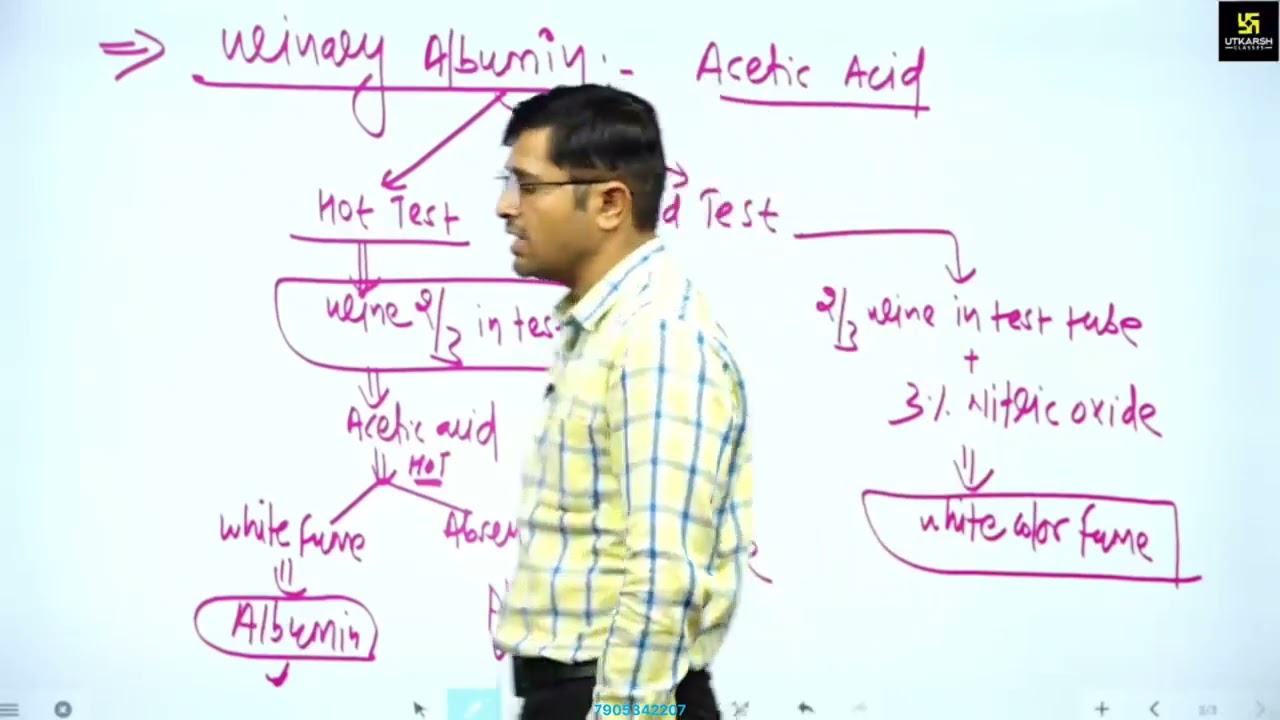 ⇒ Urinary Albumin :- Acetic Acid
Hot Test
d Test
urine 2/3 in tes
2/3 urine in test tube
+
3% Nitric oxide
Acetic acid
HOT
white fume
Absen
white color fume
Albumin
UTKARSH
CLASSES
7905342207
3/3